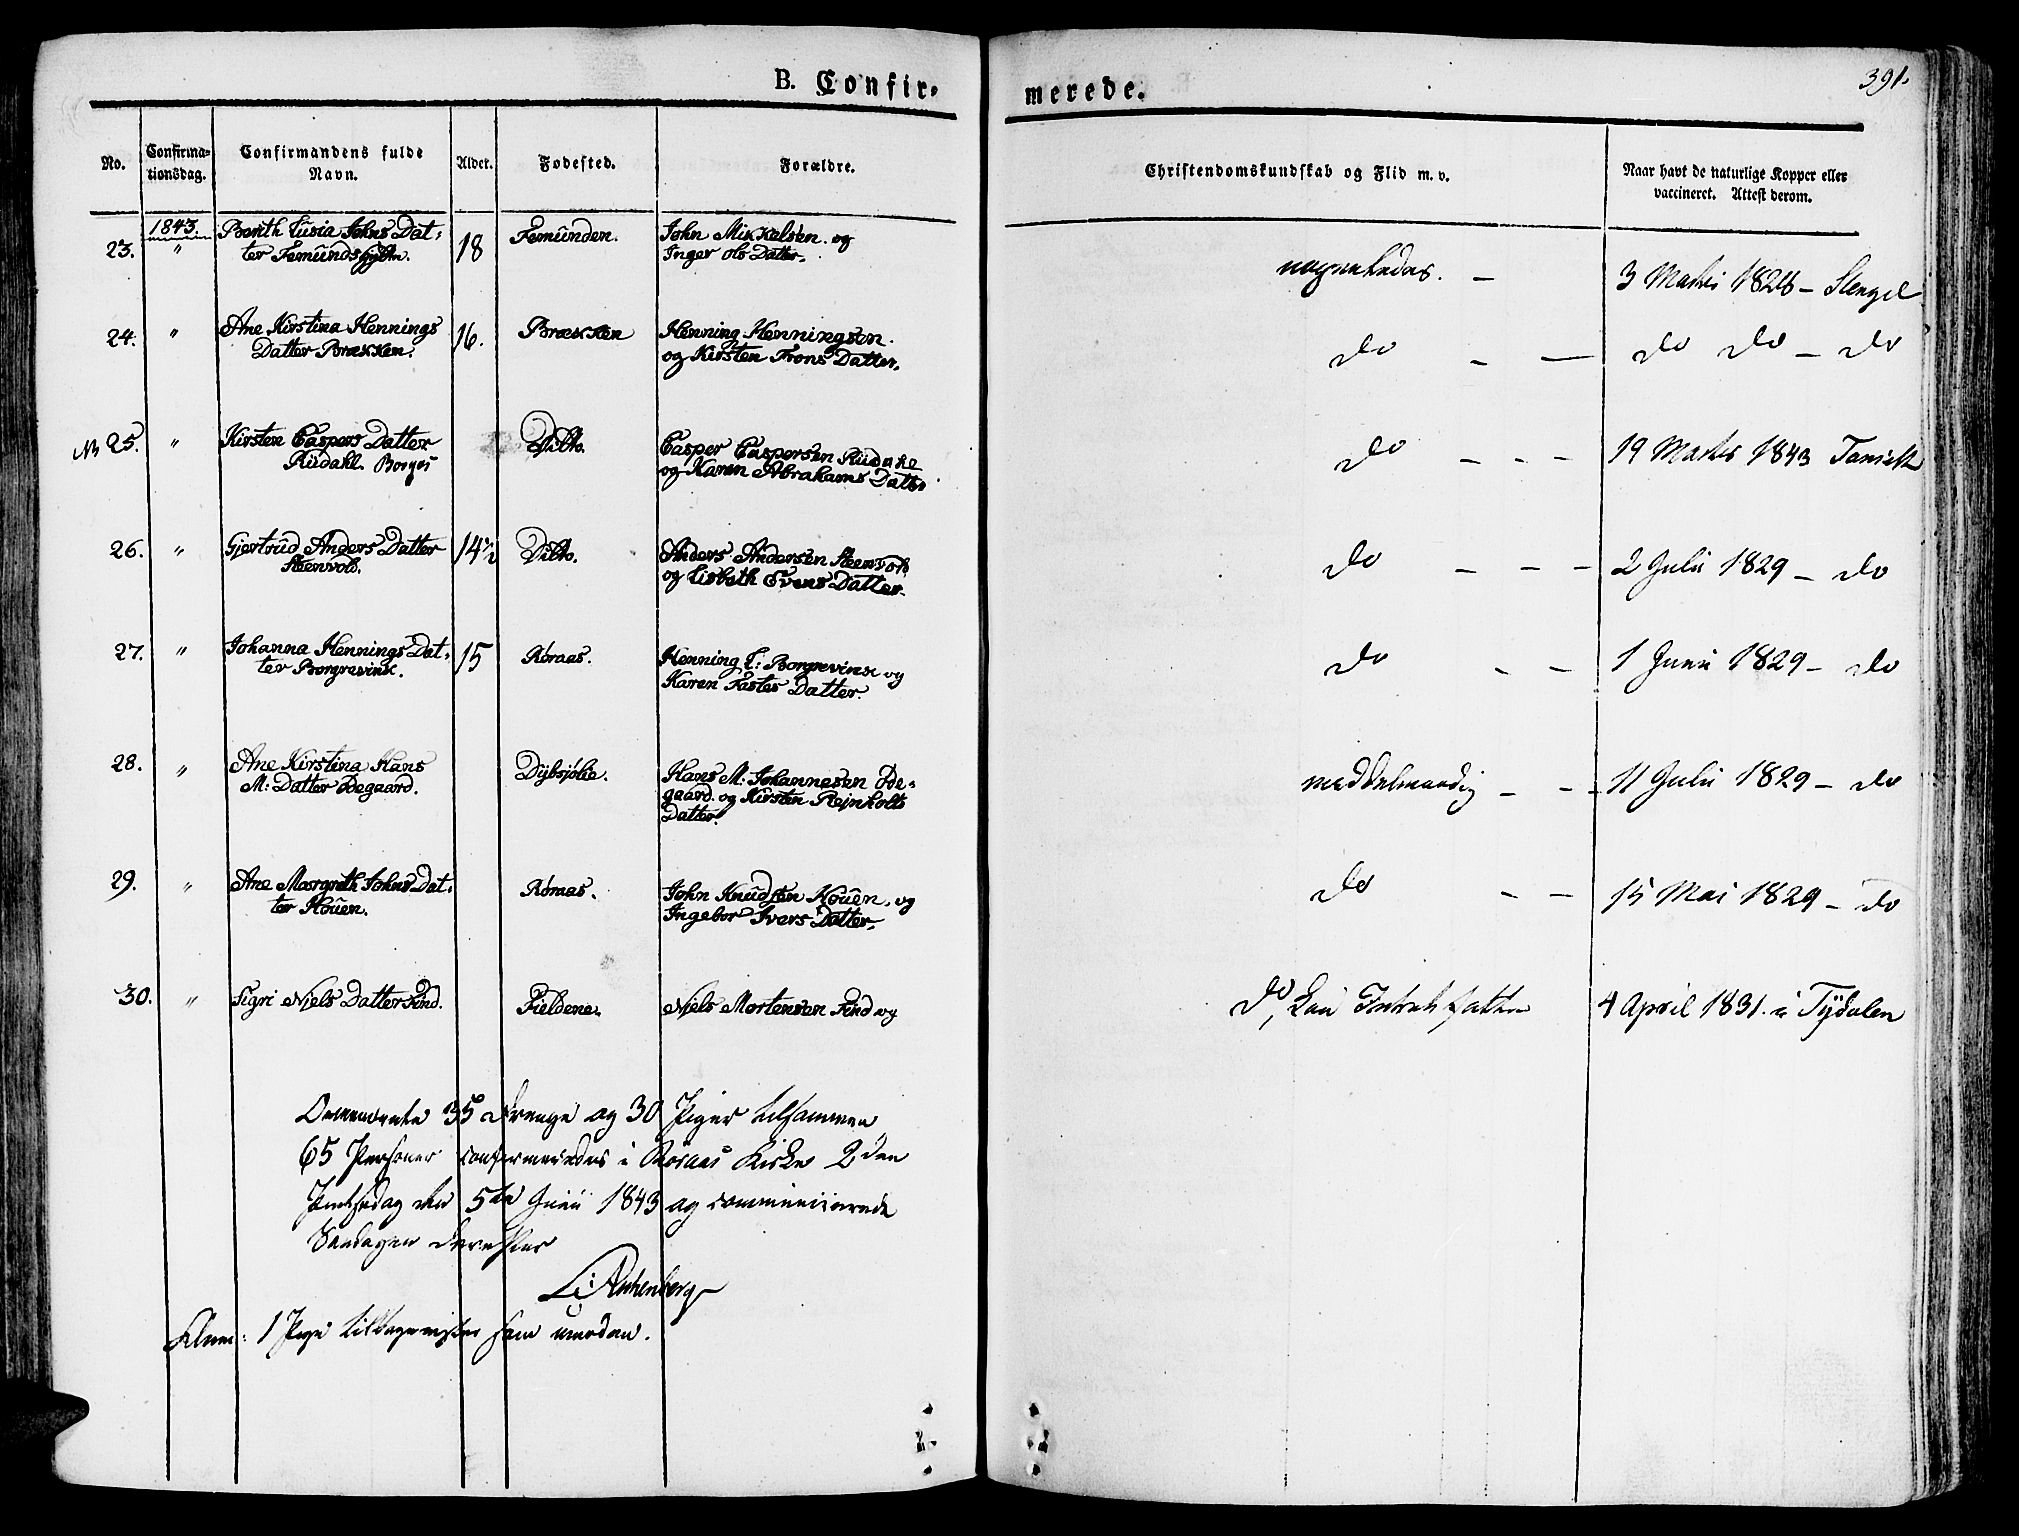 B. Confirmerede.
391.
No.
Confirmationsdag.
Confirmandens fulde Navn.
Alder.
Fødested.
Forældre.
Christendomskundskab og Flid m. v.
Naar havt de naturlige Kopper eller
vaccineret. Attest derom.
1843.
23. " Berith Lusia Johns Dat-
ter Femunds 18 Femunden. John Mikkelsen. og
Inger Ols Datter.
3 1826 – Stengel
24. " Ane Kirstina Hennings
Datter Brækken. 16. Brækken Henning Henningson.
og Kirsten Datter.
do – — do do – do
25. " Kirsten Caspers Datter
Rüdahl. Borgos Ditto. Casper Caspersen Rüdahl
og Karen Abrahams Datter
do – – – 19 Martz 1843
26. " Gjertrüd Anders Datter
Steenvold. 14½ Ditto. Anders Andersen Steenvold
og Lisbeth Datter.
do – – – 2 Julii 1829 – do
27. " Johanna Hennings Dat-
ter Borgrevink. 15 Røraas. Henning T: Borgrevink og
Karen Fastes Datter.
do – – 1 Junii 1829 – do
28. " Ane Kirstina Hans
M: Datter Øegaard. Dybsjølie. Hans M. Johannesen Øe-
gaard og Kirsten Rejnholts
Datter.
– – – 11 Julii 1829 – do
29. " Ane Margreth Johns Dat-
ter Houen. Røraas. John Knudsen Houen, og
Ingebor Ivers Datter.
do – – 15 Mai 1829 – do
30. " Sigri Niels Datter Find. Fieldene. Niels Mortensen Find og
do, 4 April 1831. i Tydalen
Ovennævnte 35 Drenge og 30 Piger tilsammen
65 Personer confirmeredes i Røraas Kirke 2den
Pintsedag den 5te Junii 1843 og communicerede
Søndagen derefter
1 Pige som